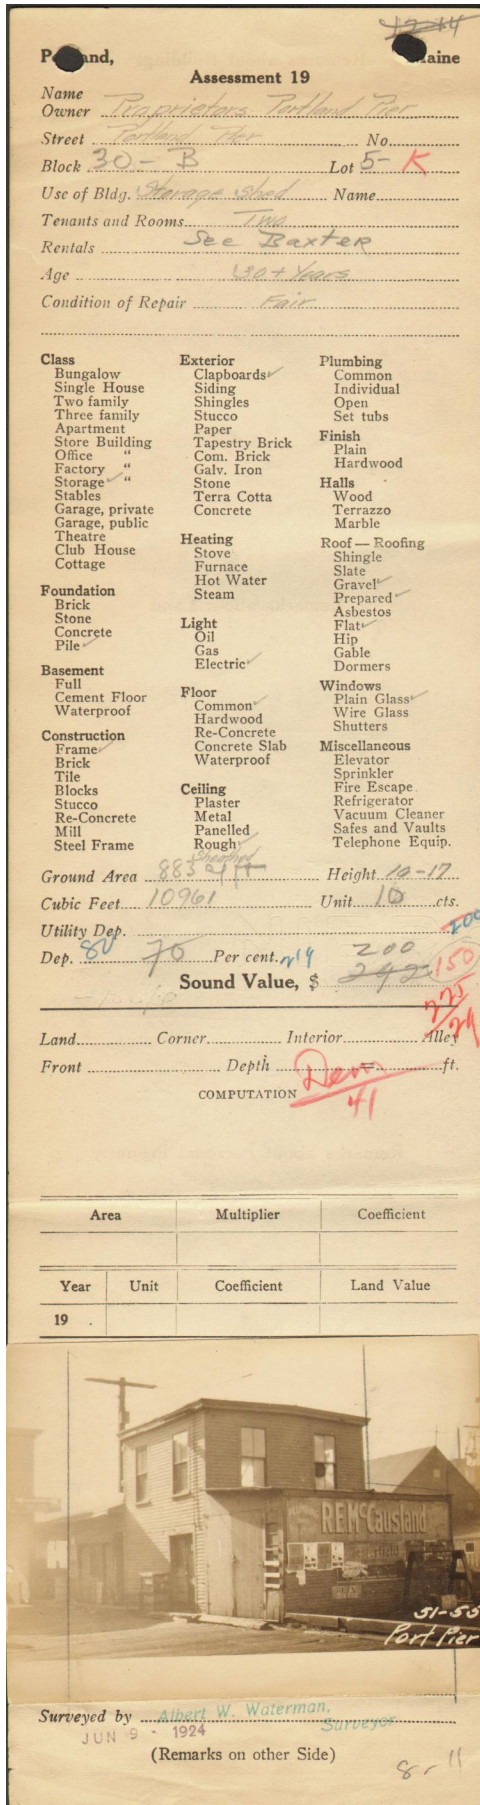 1244
Portland, Maine
Assessment 19
Name
Owner Proprietors Portland Pier
Street Portland Pier No.
Block 30-B Lot 5-K
Use of Bldg. Storage Shed Name
Tenants and Rooms Two
Rentals See Baxter
Age 30+ Years
Condition of Repair Fair
Class
Bungalow
Single House
Two family
Three family
Apartment
Store Building
Office "
Factory "
Storage ✓ "
Stables
Garage, private
Garage, public
Theatre
Club House
Cottage
Foundation
Brick
Stone
Concrete
Pile ✓
Basement
Full
Cement Floor
Waterproof
Construction
Frame ✓
Brick
Tile
Blocks
Stucco
Re-Concrete
Mill
Steel Frame
Exterior
Clapboards ✓
Siding
Shingles
Stucco
Paper
Tapestry Brick
Com. Brick
Galv. Iron
Stone
Terra Cotta
Concrete
Heating
Stove
Furnace
Hot Water
Steam
Light
Oil
Gas
Electric ✓
Floor
Common ✓
Hardwood
Re-Concrete
Concrete Slab
Waterproof
Ceiling
Plaster
Metal
Panelled
Rough ✓
Sheathed
Plumbing
Common
Individual
Open
Set tubs
Finish
Plain
Hardwood
Halls
Wood
Terrazzo
Marble
Roof — Roofing
Shingle
Slate
Gravel ✓
Prepared ✓
Asbestos
Flat ✓
Hip
Gable
Dormers
Windows
Plain Glass ✓
Wire Glass
Shutters
Miscellaneous
Elevator
Sprinkler
Fire Escape
Refrigerator
Vacuum Cleaner
Safes and Vaults
Telephone Equip.
Ground Area 883 Height 10-17
Cubic Feet 10961 Unit 10 cts.
Utility Dep. 200
Dep. 80 70 Per cent. 219 200
242 150
Sound Value, $
225
29
Land Corner Interior Alley
Front Depth = ft.
Dem
41
COMPUTATION
Area Multiplier Coefficient
Year Unit Coefficient Land Value
19 .
R.E. McCausland
51-55
Port Pier
Surveyed by Albert W. Waterman,
Surveyor
JUN 9 - 1924
(Remarks on other Side)
8-11